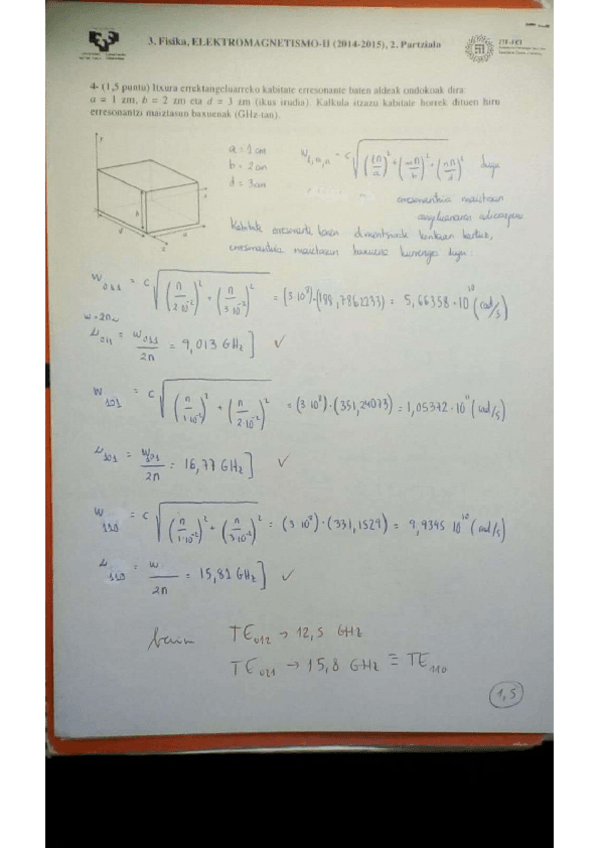 3. Fisika, ELEKTROMAGNETISMO-II (2014-2015), 2. Partziala
4- (1,5 puntu) Itxura errektangeluarreko kabitate erresonante baten aldeak ondokoak dira:
a = 1 zm, b = 2 zm eta d = 3 zm (ikus irudia). Kalkula itzazu kabitate horrek dituen hiru
erresonantzi maiztasun baxuenak (GHz-tan).
a = 1 cm
b = 2 cm
d = 3 cm
W l,m,n = c √((lπ/a)² + (mπ/b)² + (nπ/d)²) dugu
erresonantzia maiztasun
Kabitate erresonante baten dimentsioak kontuan hartuz,
erresonantzia maiztasun baxuena hurrengo dugu:
W 011 = c √((π/2·10⁻²)² + (π/3·10⁻²)²) = (3·10⁸)·(188,7862233) = 5,66358·10¹⁰ (rad/s)
ω = 2πν
ν 011 = W 011 / 2π = 9,013 GHz] ✓
W 101 = c √((π/1·10⁻²)² + (π/2·10⁻²)²) = (3·10⁸)·(351,24073) = 1,05372·10¹¹ (rad/s)
ν 101 = W 101 / 2π = 16,77 GHz] ✓
W 110 = c √((π/1·10⁻²)² + (π/3·10⁻²)²) = (3·10⁸)·(331,1529) = 9,9345 10¹⁰ (rad/s)
ν 110 = W / 2π = 15,81 GHz] ✓
bain TE₀₁₂ → 12,5 GHz
TE₀₂₁ → 15,8 GHz ≡ TE₁₁₀
1,5